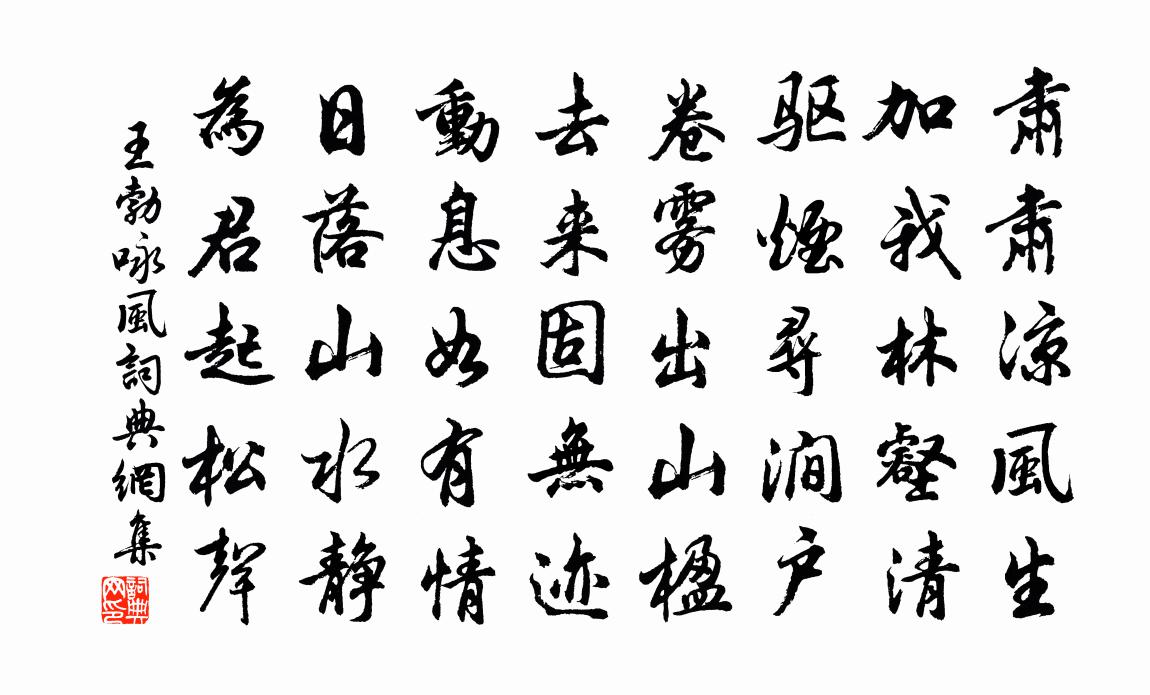 肅肅涼風生
加我林壑清
驱煙尋澗户
卷雾出山楹
去来固無迹
動息如有情
日落山水静
為君起松聲
王勃咏風詞典網集
詞典網印